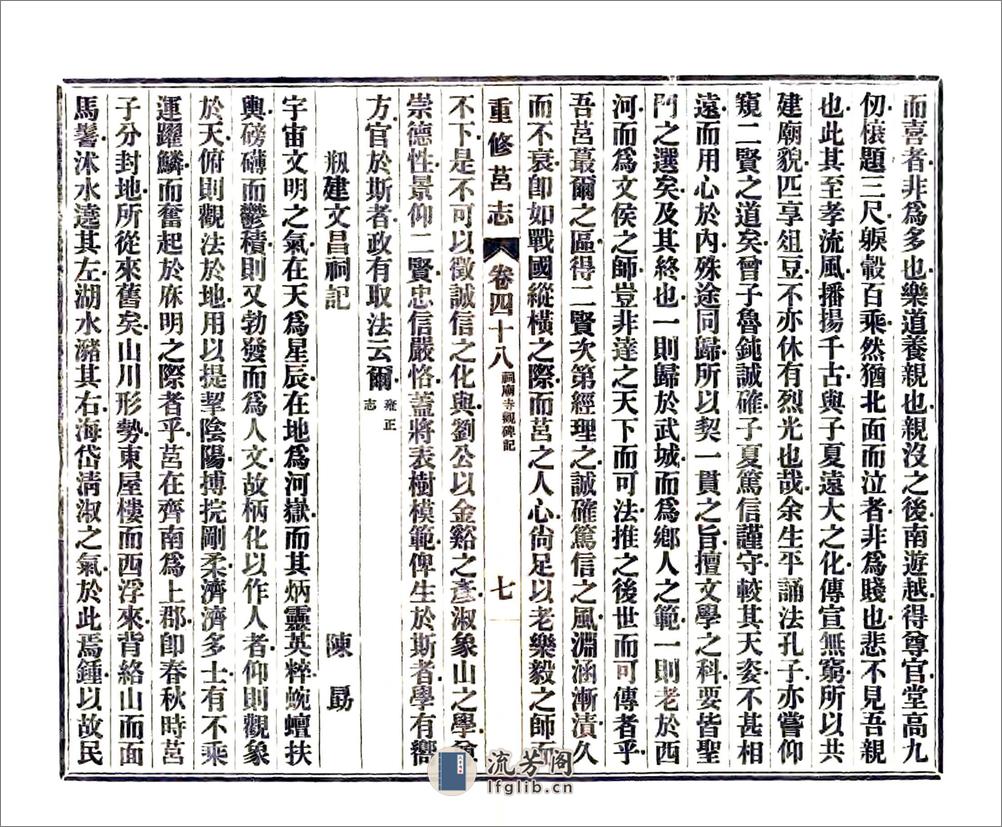 而喜者非為多也樂道養親也親沒之後南遊越得尊官堂高九
仞榱題三尺躸轂百乘然猶北面而泣者非為賤也悲不見吾親
也此其至孝流風播揚千古與子夏遠大之化傳宣無窮所以共
建廟貌匹享俎豆不亦休有烈光也哉余生平誦法孔子亦嘗仰
窺二賢之道矣曾子魯鈍誠確子夏篤信謹守較其天姿不甚相
遠而用心於內殊途同歸所以契一貫之旨擅文學之科要皆聖
門之選矣及其終也一則歸於武城而為鄉人之範一則老於西
河而為文侯之師豈非達之天下而可法推之後世而可傳者乎
吾莒叢爾之區得二賢次第經理之誠確篤信之風淵涵漸漬久
而不衰卽如戰國縱橫之際而莒之人心尙足以老樂毅之師而
重修莒志 卷四十八 祠廟寺觀碑記 七
不下是不可以徵誠信之化與劉公以金谿之產淑象山之學僉
崇德性景仰二賢忠信嚴恪蓋將表樹模範俾生於斯者學有嚮
方官於斯者政有取法云爾 雍正志
剏建文昌祠記 陳勗
宇宙文明之氣在天為星辰在地為河嶽而其炳靈英粹蜿蟺扶
輿磅礡而鬱積則又勃發而為人文故柄化以作人者仰則觀象
於天俯則觀法於地用以提挈陰陽摶捖剛柔濟濟多士有不乘
運躍鱗而奮起於庥明之際者乎莒在齊南為上郡卽春秋時莒
子分封地所從來舊矣山川形勢東屋樓而西浮來背絡山而面
馬鬐沭水遶其左湖水瀦其右海岱淸淑之氣於此焉鍾以故民
流芳阁
lfglib.cn